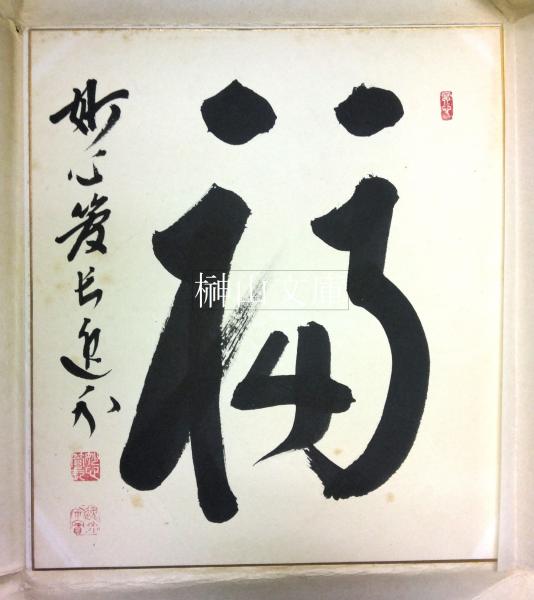 福
妙心管長逸外
榊山文庫